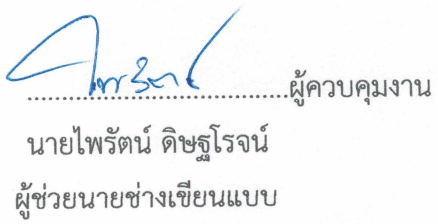 ไพรัตน์ ........................................ผู้ควบคุมงาน
นายไพรัตน์ ดิษฐโรจน์
ผู้ช่วยนายช่างเขียนแบบ